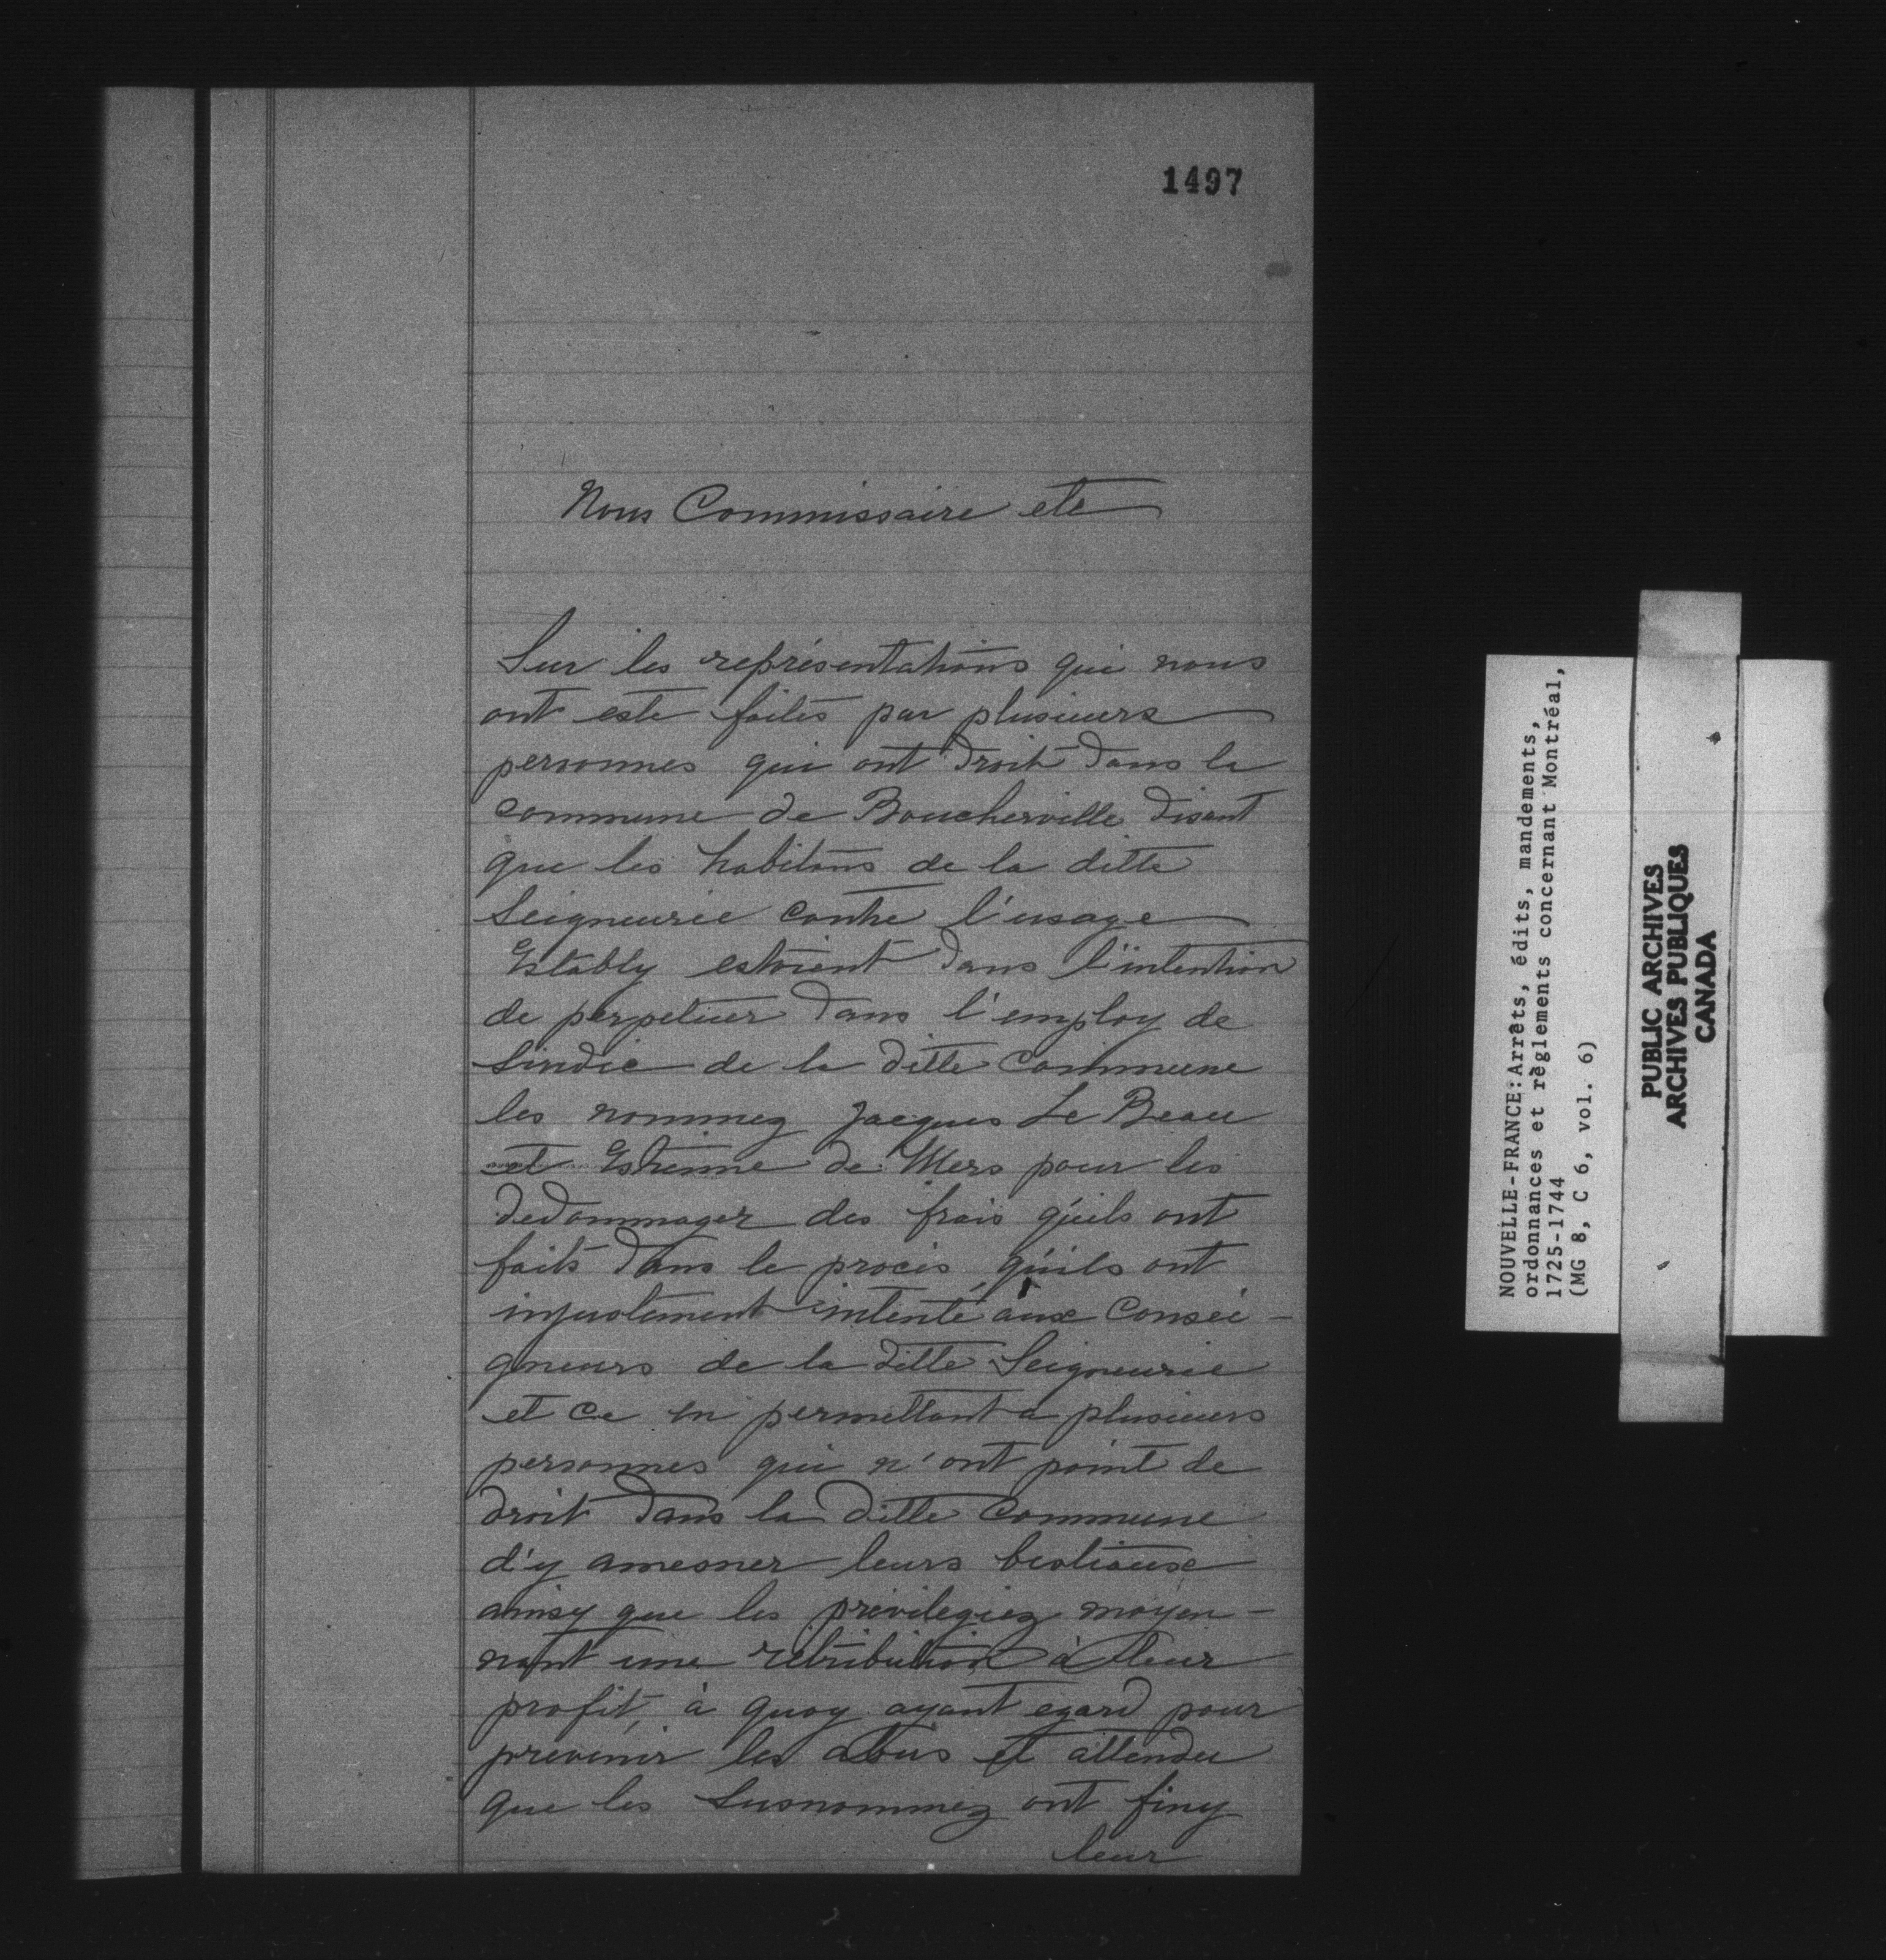 1497
Nous Commissaire etc
Sur les représentations qui nous
ont este faites par plusieurs
personnes qui ont droit dans la
commune de Boucherville disant
que les habitans de la ditte
Seigneurie contre l'usage
Estably estoient dans l'intention
de perpetuer dans l'employ de
Sindic de la ditte Commune
les nommez Jacques Le Beau
et Estienne de Mers pour les
dedommager des frais qu'ils ont
faits dans le procès qu'ils ont
injustement intenté aux Consei-
gneurs de la ditte Seigneurie
et ce en permettant a plusieurs
personnes qui n'ont point de
droit dans la ditte Commune
d'y amesner leurs bestiaux
ainsy que les privilegiez moyen-
nant une rétribution à leur
profit, à quoy ayant egard pour
prevenir les abus et attendu
que les Susnommez ont finy
leur
NOUVELLE-FRANCE: Arrêts, édits, mandements,
ordonnances et règlements concernant Montréal,
1725-1744
(MG 8, C 6, vol. 6)
PUBLIC ARCHIVES
ARCHIVES PUBLIQUES
CANADA